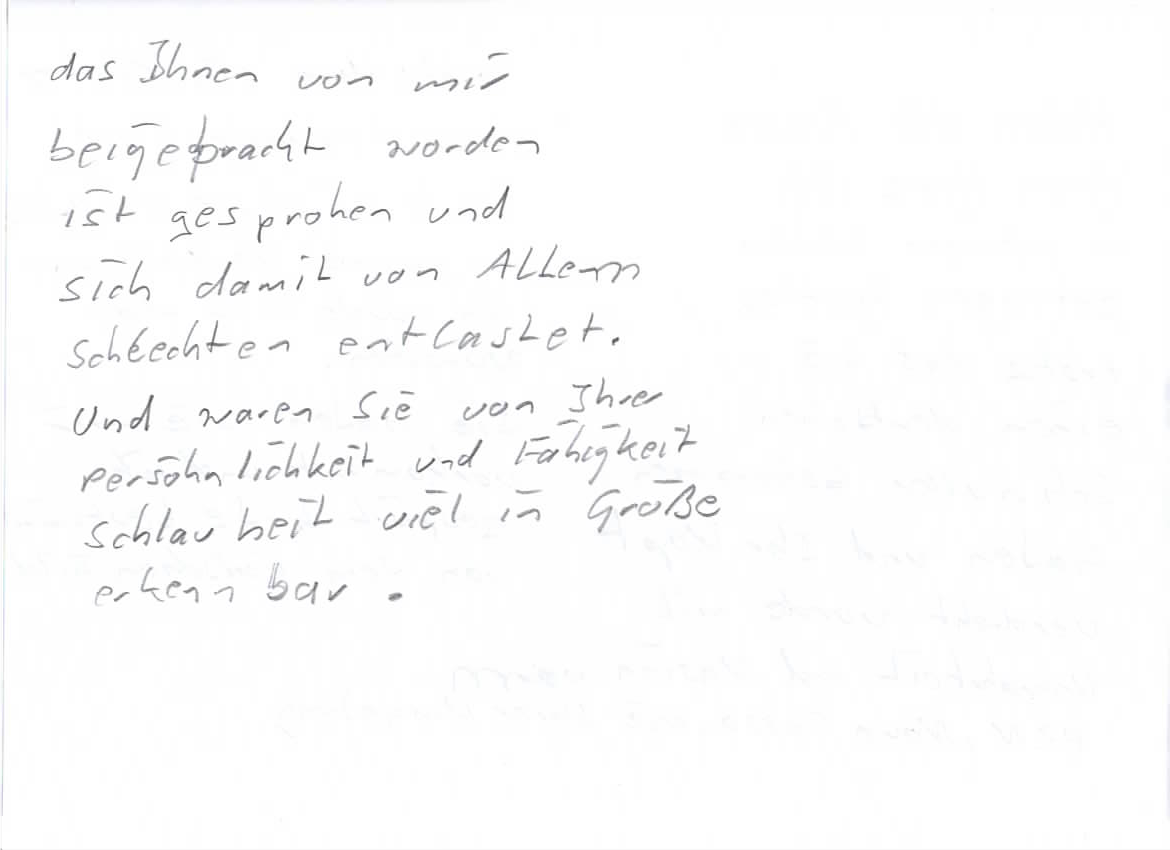 das Ihnen von mir
beigebracht worden
ist gesprohen und
sich damit von Allem
schlechten entlastet.
Und waren Sie von Ihrer
persöhnlichkeit und Fähigkeit
schlauheit viel in Größe
erkennbar.